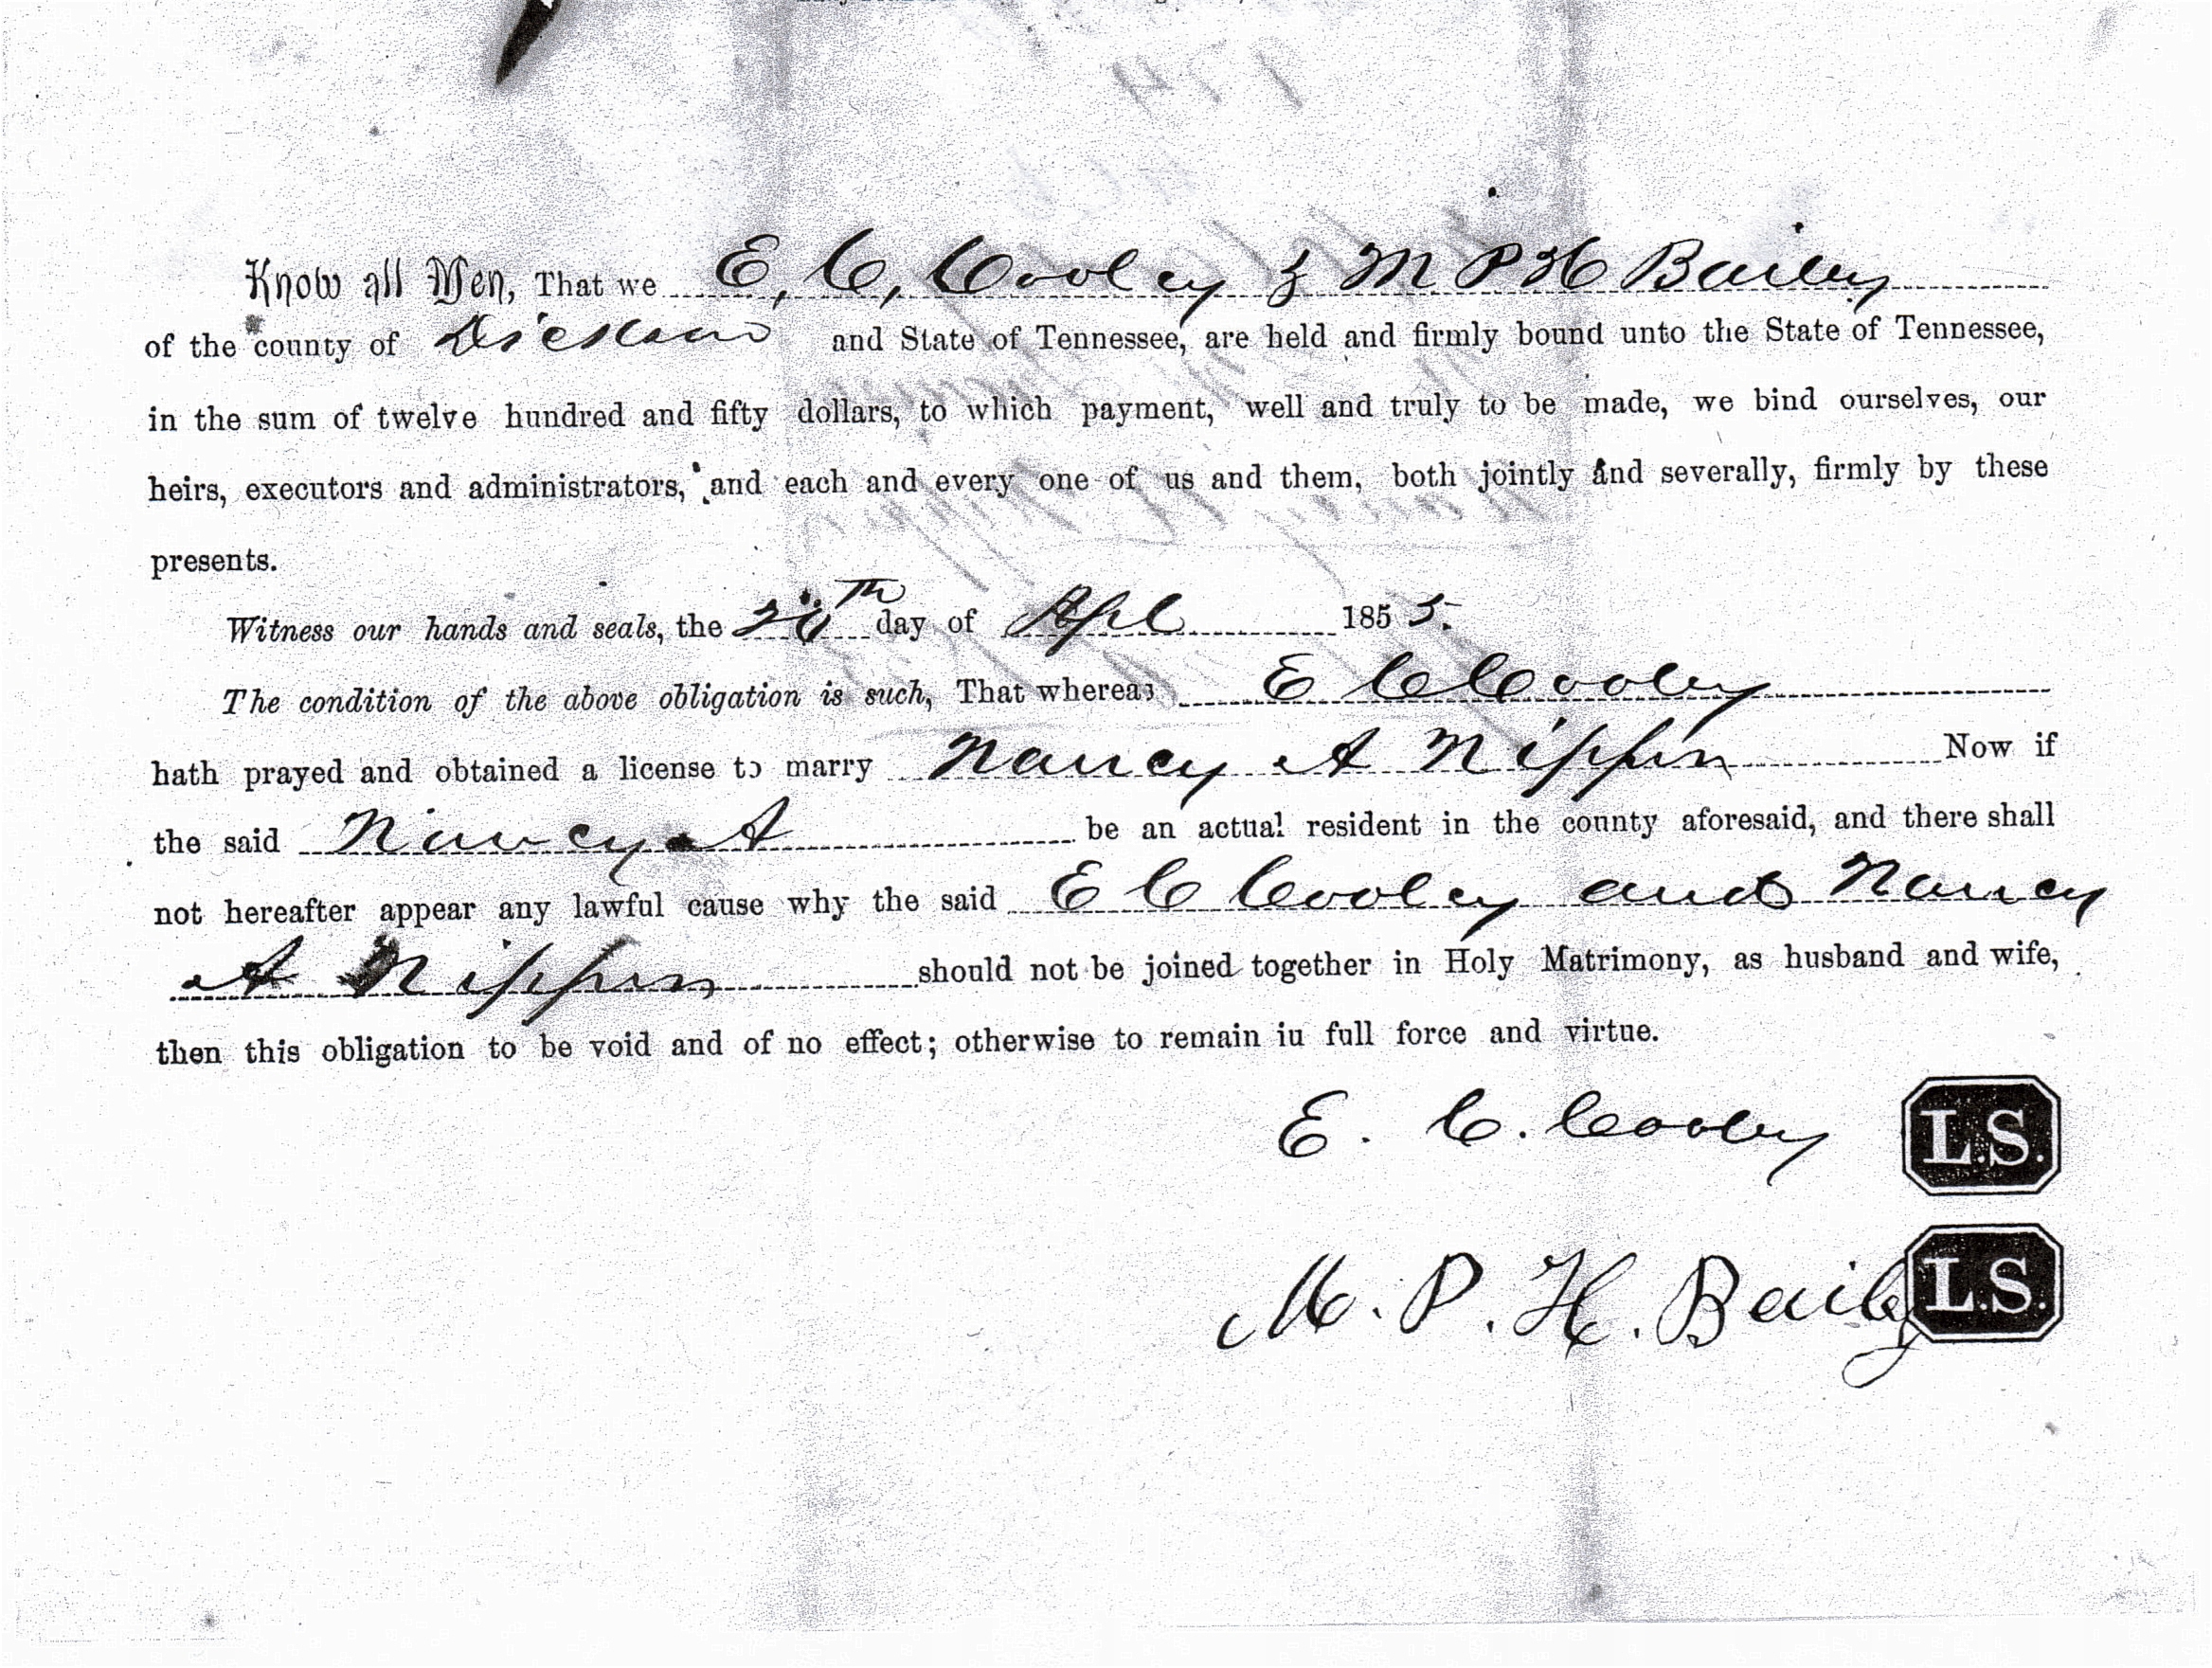 Know all Men, That we E, C, Cooley & M P H Bailey
of the county of Dickson and State of Tennessee, are held and firmly bound unto the State of Tennessee,
in the sum of twelve hundred and fifty dollars, to which payment, well and truly to be made, we bind ourselves, our
heirs, executors and administrators, and each and every one of us and them, both jointly and severally, firmly by these
presents.
Witness our hands and seals, the day of Apl 1855.
The condition of the above obligation is such, That whereas E C Cooley
hath prayed and obtained a license to marry Nancy A Nippin Now if
the said Nancy A be an actual resident in the county aforesaid, and there shall
not hereafter appear any lawful cause why the said E C Cooley and Nancy
A Nippin should not be joined together in Holy Matrimony, as husband and wife,
then this obligation to be void and of no effect; otherwise to remain iu full force and virtue.
E. C. Cooley L.S.
M. P. H. Baily L.S.